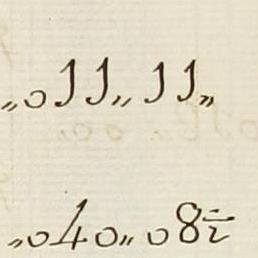 „011„11„
„040„08½